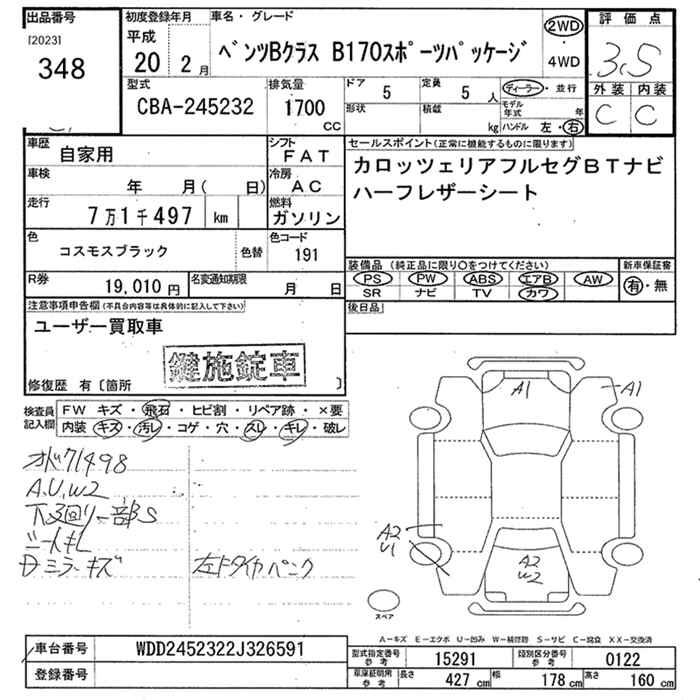 出品番号
[2023]
348
初度登録年月
平成
20 2 月
車名・グレード
ベンツBクラス B170スポーツパッケージ
2WD
・
4WD
評価点
3.5
外装 内装
C C
型式
CBA-245232
排気量
1700
CC
ドア
5
定員
5 人
形状
積載
kg
ディーラー・並行
モデル年式 年
ハンドル 左・右
車歴
自家用
シフト
FAT
車検
年 月( 日)
冷房
AC
走行
7万1千497 km
燃料
ガソリン
色
コスモスブラック
色替
色コード
191
R券
19,010 円
名変通知期限
月 日
セールスポイント(正常に機能するものに限ります)
カロッツェリアフルセグBTナビ
ハーフレザーシート
装備品(純正品に限り○をつけてください)
PS PW ABS エアB AW
SR ナビ TV カワ
新車保証書
有・無
後日品
注意事項申告欄(不具合内容等は具体的に記入して下さい)
ユーザー買取車
鍵施錠車
修復歴 有〔箇所 〕
検査員
記入欄
FW キズ・飛石・ヒビ割・リペア跡・×要
内装 キズ・汚レ・コゲ・穴・スレ・キレ・破レ
オド71498
A.U.W2
下回り一部S
シートキレ
Dミラーキズ
左下タイヤパンク
A1
A1
A2
U1
A2
W2
スペア
A-キズ E-エクボ U-凹み W-補修跡 S-サビ C-腐食 XX-交換済
車台番号
WDD2452322J326591
登録番号
型式指定番号
参考
15291
類別区分番号
参考
0122
車庫証明用
参考
長さ
427 cm
幅
178 cm
高さ
160 cm